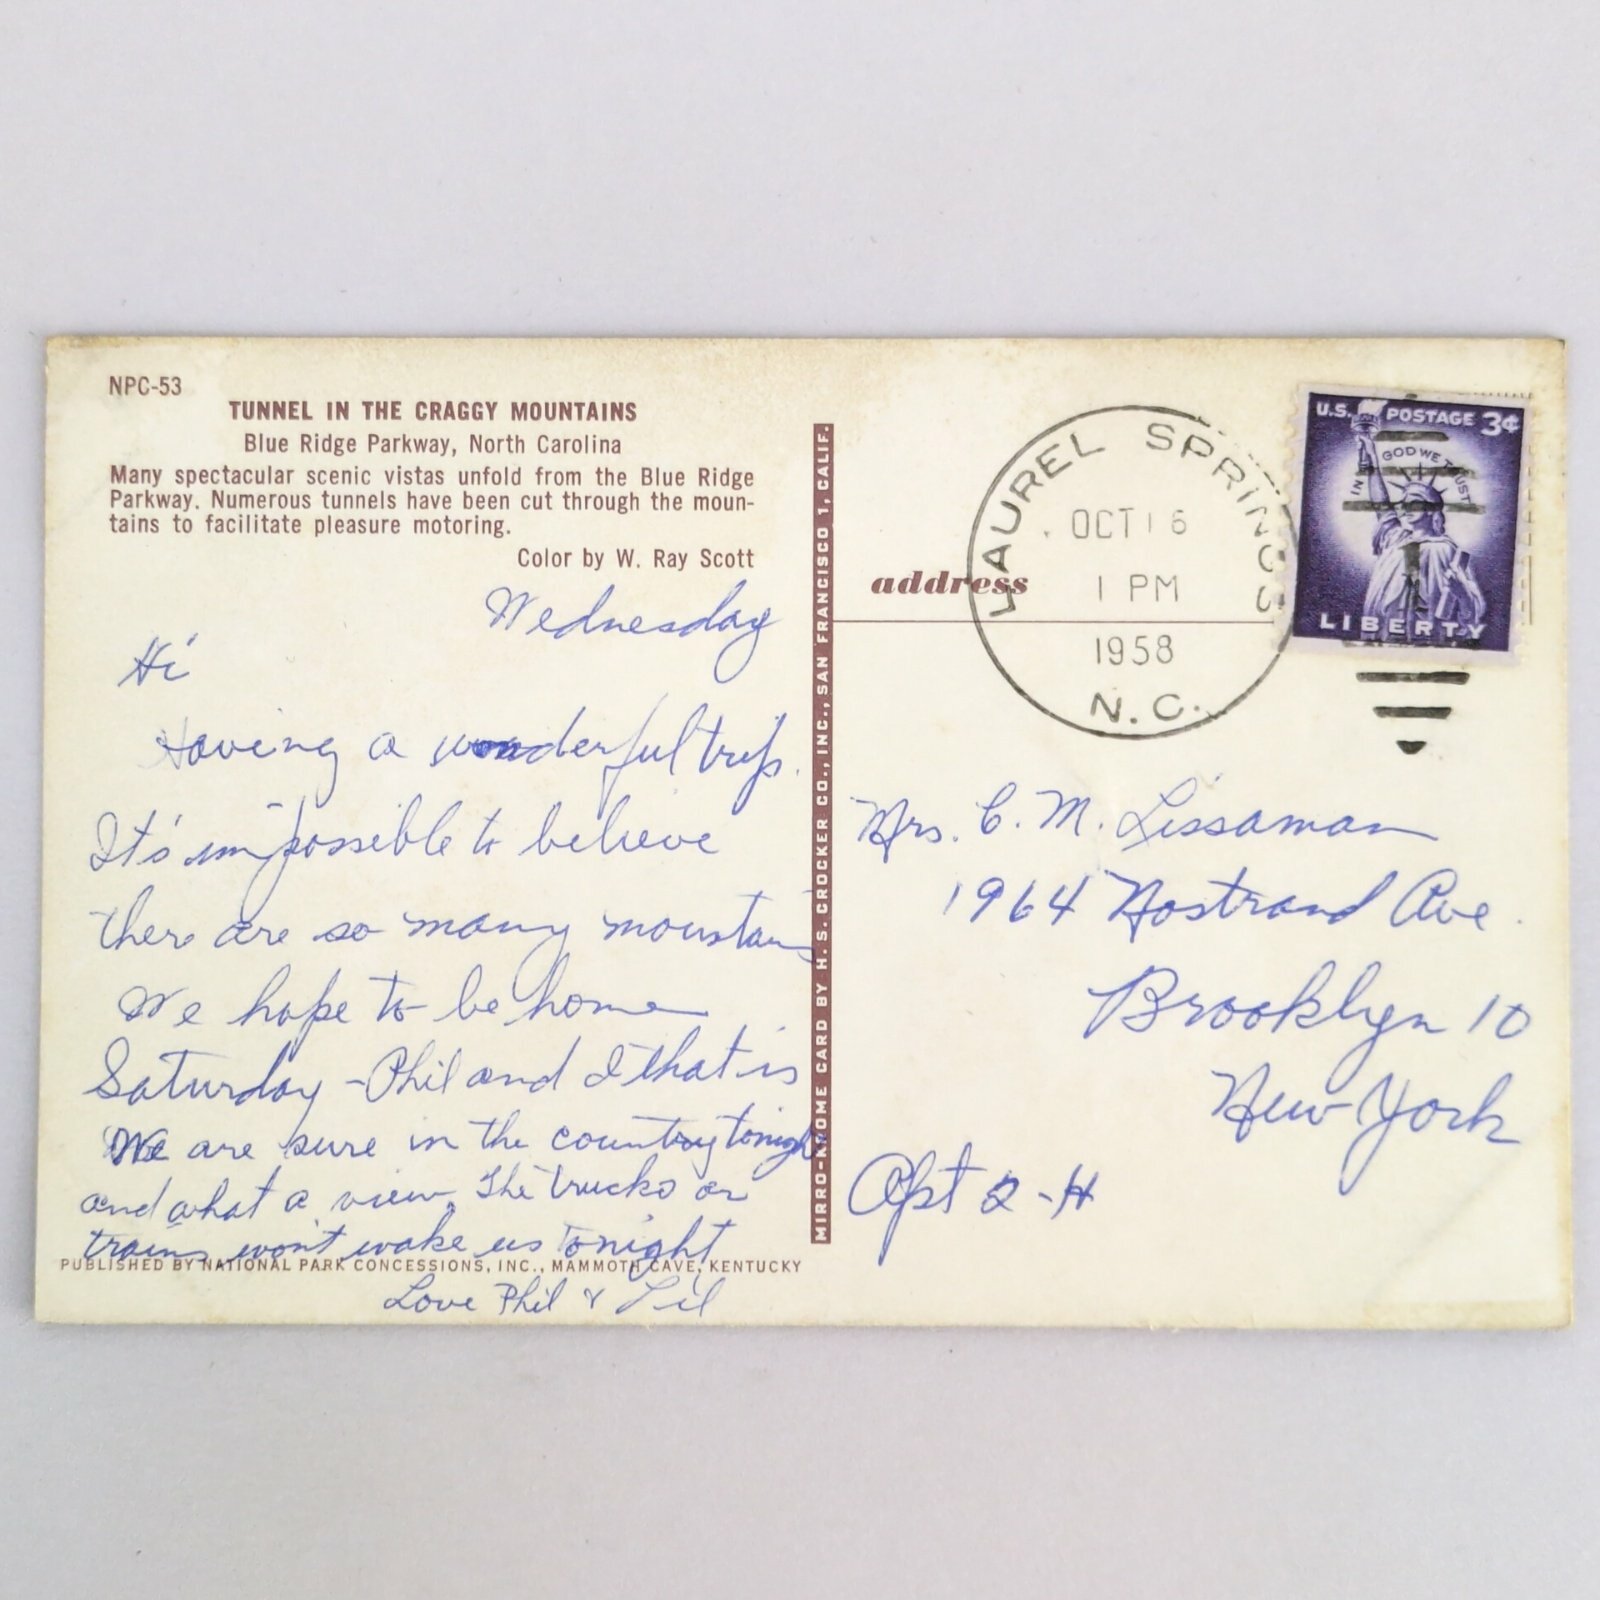 NPC-53
TUNNEL IN THE CRAGGY MOUNTAINS
Blue Ridge Parkway, North Carolina
Many spectacular scenic vistas unfold from the Blue Ridge
Parkway. Numerous tunnels have been cut through the moun-
tains to facilitate pleasure motoring.
Color by W. Ray Scott
Wednesday
Hi
Having a wonderful trip.
It's impossible to believe
there are so many mountains
We hope to be home
Saturday - Phil and I that is
We are sure in the country tonight
and what a view. The trucks or
trains won't wake us tonight
PUBLISHED BY NATIONAL PARK CONCESSIONS, INC., MAMMOTH CAVE, KENTUCKY
Love Phil & Lil
MIRRO-KROME CARD BY H. S. CROCKER CO., INC., SAN FRANCISCO 1, CALIF.
address
LAUREL SPRINGS
OCT 16
1 PM
1958
N.C.
U.S. POSTAGE 3¢
IN GOD WE TRUST
LIBERTY
Mrs. C. M. Lissaman
1964 Nostrand Ave.
Brooklyn 10
New York
Apt 2-H